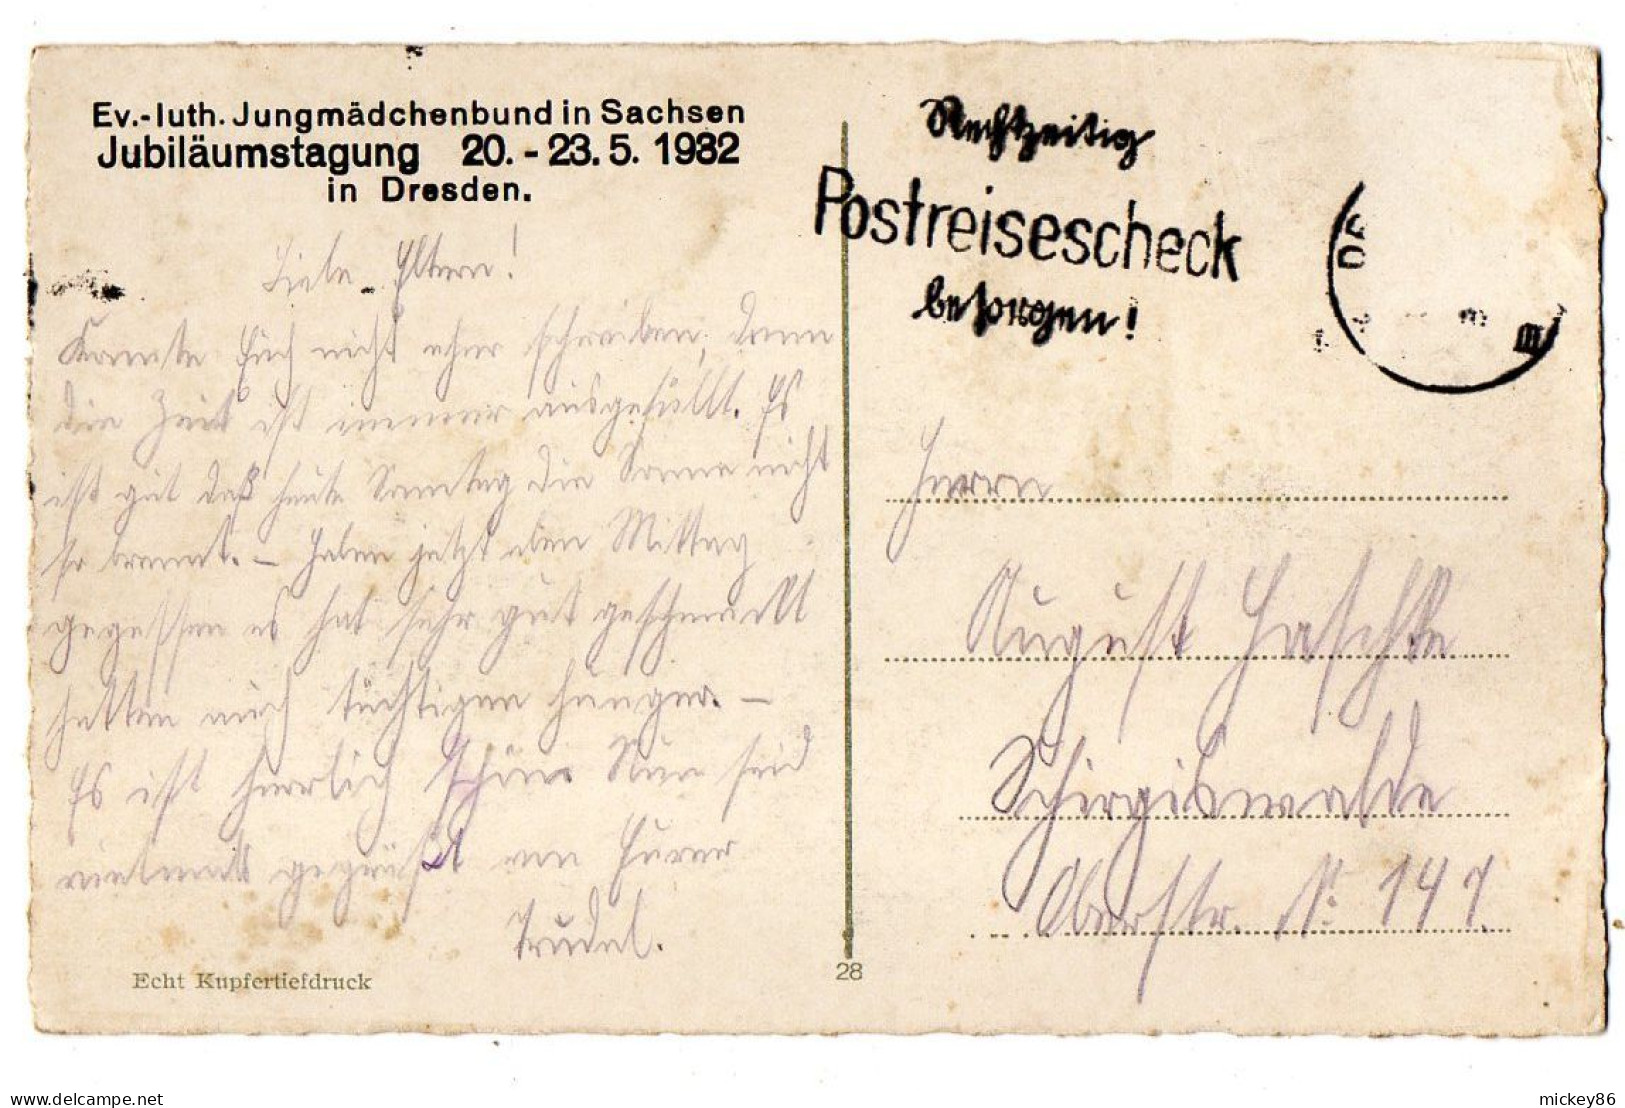 Ev.-luth. Jungmädchenbund in Sachsen
Jubiläumstagung 20. - 23. 5. 1932
in Dresden.
Liebe Eltern!
Konnte Euch nicht eher schreiben, denn
die Zeit ist immer ausgefüllt. Es
ist gut daß heute Sonntag die Sonne nicht
so brennt. – Haben jetzt eben Mittag
gegessen es hat sehr gut geschmeckt
hatten auch tüchtigen Hunger. –
Es ist herrlich schön. Nun seid
vielmals gegrüßt von Eurer
Trudel.
Echt Kupfertiefdruck
28
Rechtzeitig
Postreisescheck
besorgen!
Herrn
August Haschke
Schirgiswalde
Oberstr. No: 141.
delcampe.net
mickey86